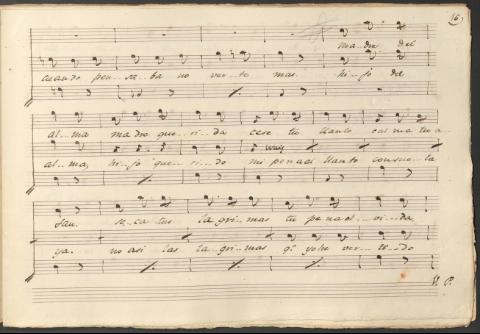 16,
ma..dre del
cuando pen..sa..ba no ver..te mas. hi..jo del
al..ma madre que..ri..da cese tu llanto calma tu a..
al..ma, hi..jo que..ri..do mi pena el llanto consue..la
fan. se..ca tus la gri..mas tu pena ol..vi..da,
ya. no asi las la..gri..mas qe yo he ver..ti..do
V. P.